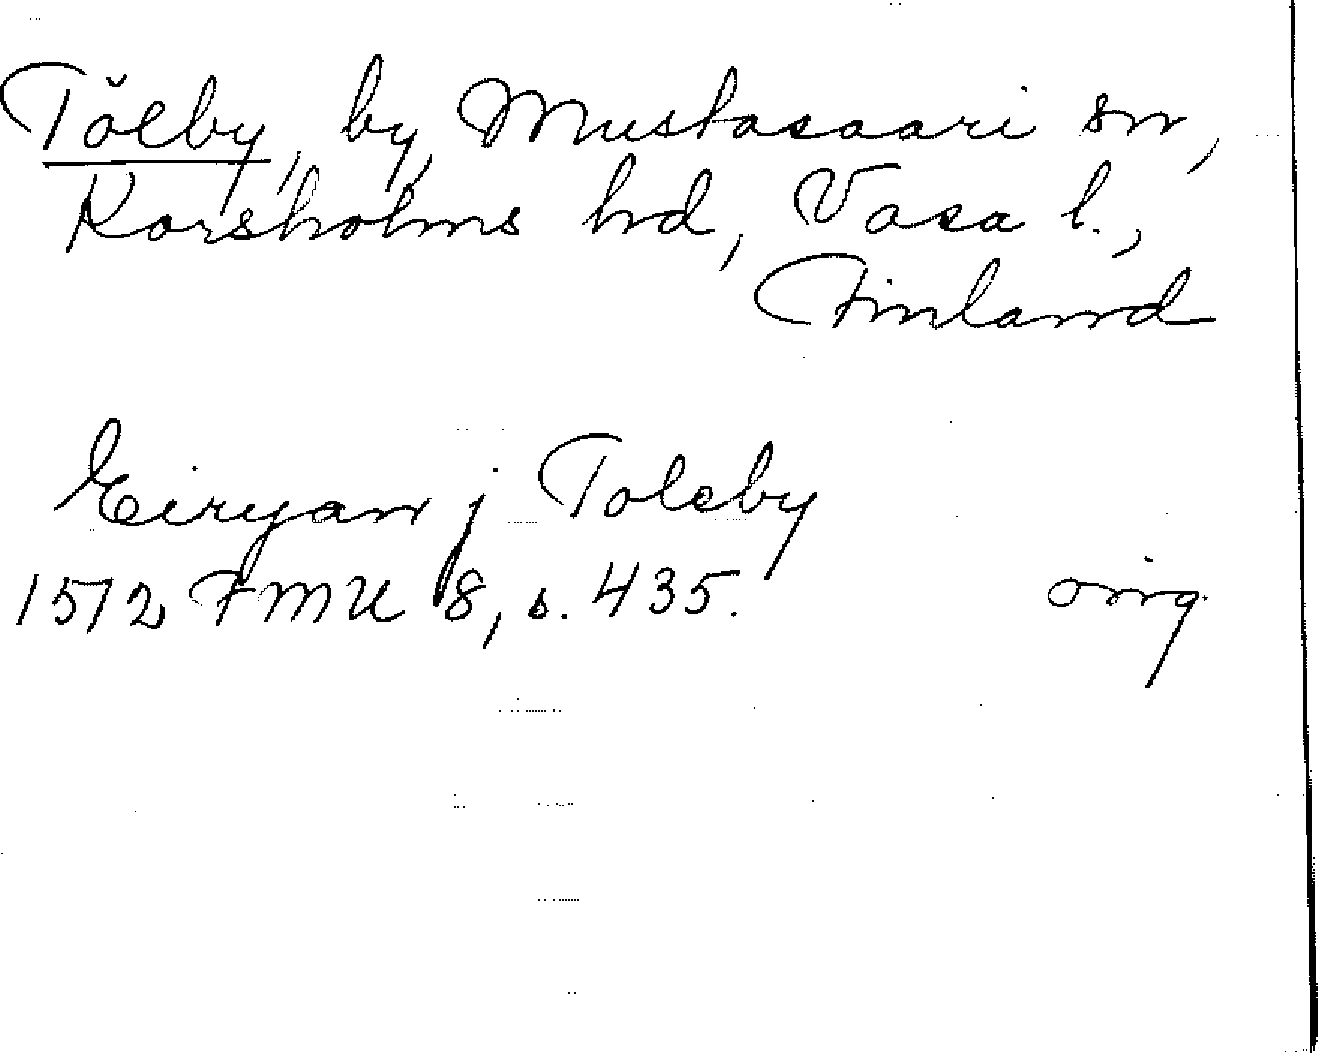 Tölby, by, Mustasaari sn,
Korsholms hd, Vasa l.,
Finland
Eiryan j Toleby
1572 FMU 8, s. 435. orig.